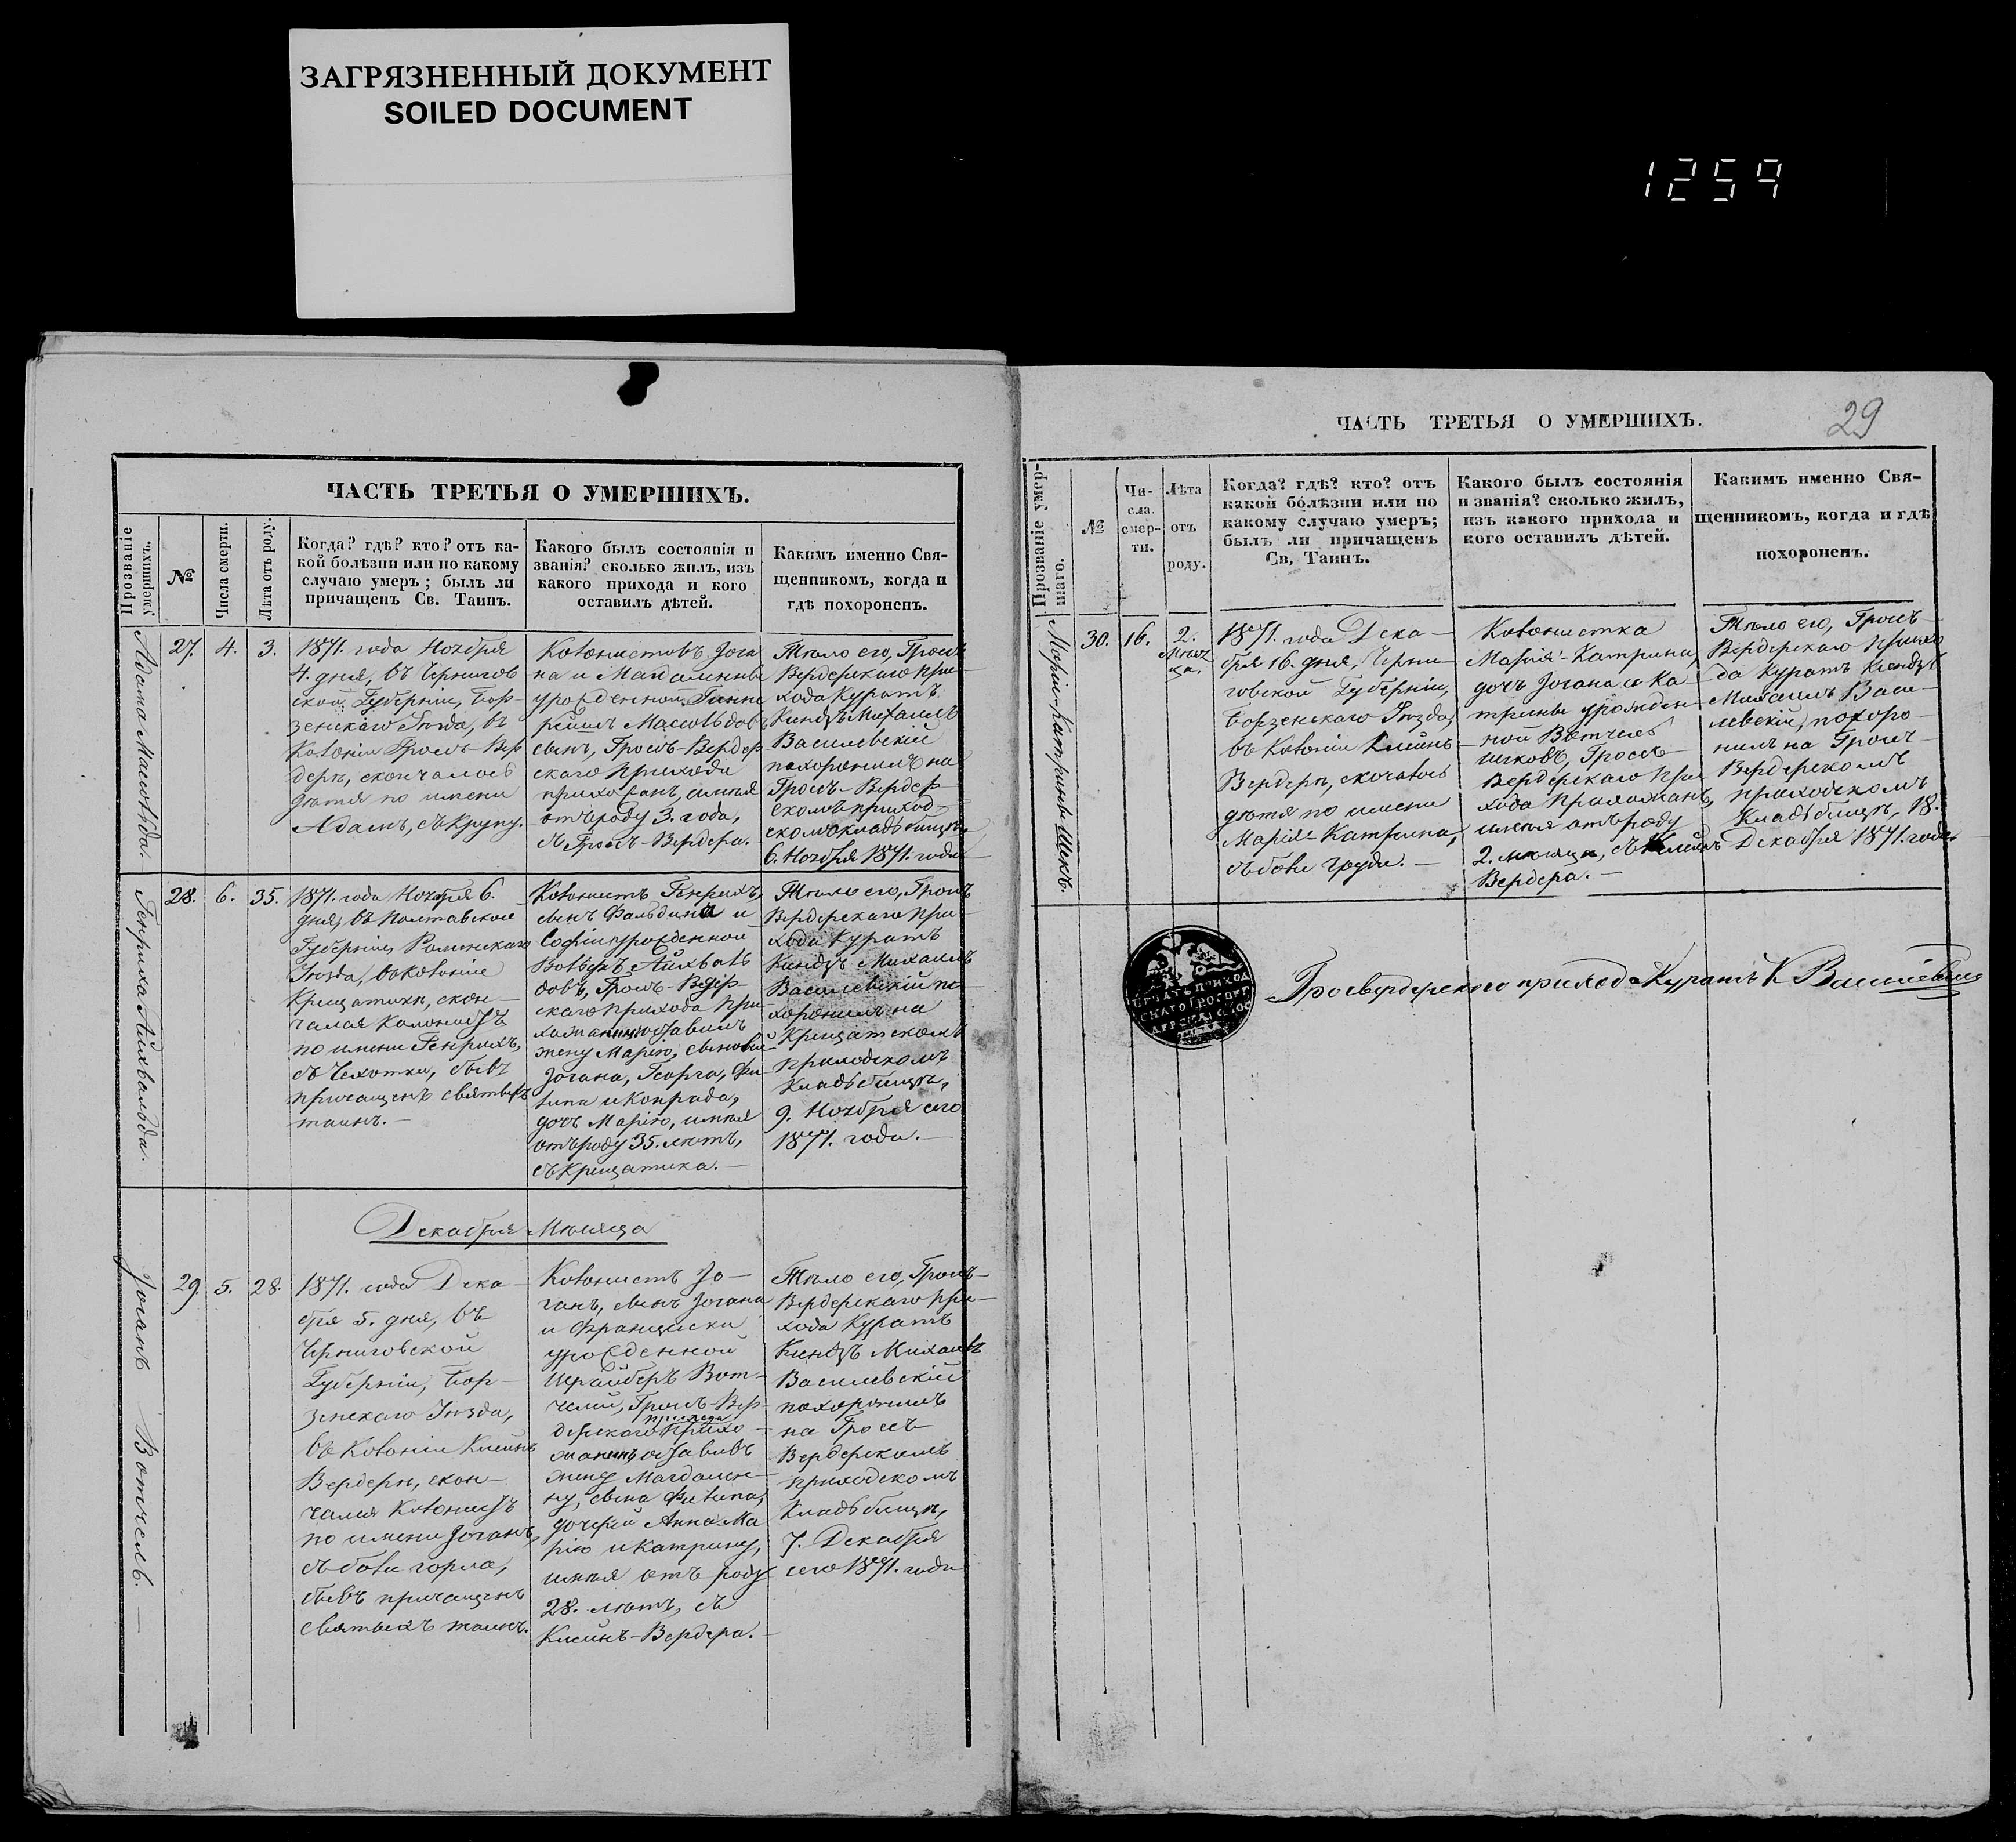 ЗАГРЯЗНЕННЫЙ ДОКУМЕНТ
SOILED DOCUMENT
1259
ЧАСТЬ ТРЕТЬЯ О УМЕРШИХЪ.
Прозваніе умершихъ.
№
Числа смерти.
Лѣта отъ роду.
Когда? гдѣ? кто? отъ ка-
кой болѣзни или по какому
случаю умеръ; былъ ли
причащенъ Св. Таинъ.
Какого былъ состоянія и
званія? сколько жилъ, изъ
какого прихода и кого
оставилъ дѣтей.
Какимъ именно Свя-
щенникомъ, когда и
гдѣ похороненъ.
27. 4. 3.
1871. года Ноября
4. дня, въ Чернигов
ской Губерніи, Бор-
зенскаго Уѣзда, въ
Колоніи Гросъ-Вер
дерѣ, скончалось
дитя по имени
Адамъ, съ крупу.
Колонистовъ Іога
на и Магдалины
урожденной
сынъ, Гросъ-Вердер
скаго прихода
прихожанъ, имѣя
отъ роду 3. года,
съ Гросъ-Вердера.
Тѣло его, Гросъ
Вердерскаго при-
хода Куратъ
Ксендзъ Михаилъ
Василевскій
похоронилъ на
Гросъ-Вердер
скомъ приход-
скомъ кладбищѣ,
6. Ноября 1871. года
Генриха Айхвальда.
28. 6. 35.
1871. года Ноября 6.
дня, въ Полтавской
Губерніи, Роменскаго
Уѣзда, въ Колоніи
Крещатикѣ, скон-
чался Колонистъ
по имени Генрихъ,
съ чехотки, бывъ
причащенъ святыхъ
таинъ. —
Колонистъ Генрихъ,
сынъ и
Софіи урожденной
Айхваль
довъ, Гросъ-Вердер-
скаго прихода при
хожанинъ оставилъ
жену Марію, сыновей
Іогана, Георга, Фи
липа и Конрада,
дочь Марію, имѣя
отъ роду 35. лѣтъ,
съ Крещатика. —
Тѣло его, Гросъ
Вердерскаго при-
хода Куратъ
Ксендзъ Михаилъ
Василевскій по-
хоронилъ на
Крещатскомъ
приходскомъ
кладбищѣ,
9. Ноября сего
1871. года. —
Декабря Мѣсяца
Іоганъ Вотчель. —
29. 5. 28.
1871. года Дека-
бря 5. дня, въ
Черниговской
Губерніи, Бор-
зенскаго Уѣзда,
въ Колоніи Клейнъ
Вердерѣ, скон-
чался Колонистъ
по имени Іоганъ,
съ боли горла,
бывъ причащенъ
святыхъ таинъ.
Колонистъ Іо-
ганъ, сынъ Іогана
и Францишки
урожденной
Шрайберъ Вот-
чели, Гросъ-Вер-
дерскаго прихода прихо
жанинъ оставивъ
жену Магдале-
ну, сына Филипа,
дочерей Анна Ма
рію и Катрину,
имѣя отъ роду
28. лѣтъ, съ
Клейнъ-Вердера. —
Тѣло его, Гросъ-
Вердерскаго при-
хода Куратъ
Ксендзъ Михаилъ
Василевскій
похоронилъ
на Гросъ
Вердерскомъ
приходскомъ
кладбищѣ,
7. Декабря
сего 1871. года
ЧАСТЬ ТРЕТЬЯ О УМЕРШИХЪ.
29
Прозваніе умер-
шаго.
№
Чи-
сла
смер-
ти.
Лѣта
отъ
роду.
Когда? гдѣ? кто? отъ
какой болѣзни или по
какому случаю умеръ;
былъ ли причащенъ
Св. Таинъ.
Какого былъ состоянія
и званія? сколько жилъ,
изъ какого прихода и
кого оставилъ дѣтей.
Какимъ именно Свя-
щенникомъ, когда и гдѣ
похороненъ.
30. 16. 2.
1871. года Дека-
бря 16. дня, Черни-
говской Губерніи,
Борзенскаго Уѣзда,
въ Колоніи Клейнъ-
Вердерѣ, скончалось
дитя по имени
Марія-Катрина,
съ боли груди. —
Колонистка
Марія-Катрина,
дочь Іогана и Ка
трины урожден
ной Вотчель
Гросъ-
Вердерскаго при
хода прихожанъ,
имѣя отъ роду
2. мѣсяца, съ Клейнъ
Вердера. —
Тѣло его, Гросъ-
Вердерскаго прихо
да Куратъ Ксендзъ
Михаилъ Васи-
левскій, похоро-
нилъ на Гросъ-
Вердерскомъ
приходскомъ
кладбищѣ, 18.
Декабря 1871. года
Гросвердерскаго прихода Куратъ К Василевскій